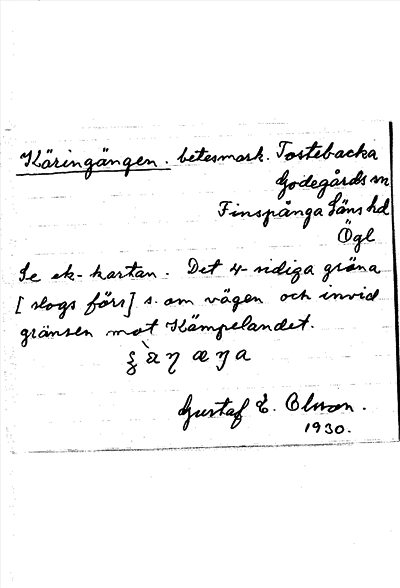 Käringängen. betesmark. Tostebacka
Godegårds sn
Finspånga Läns hd
Ögl
Se ek-kartan. Det 4-sidiga gröna
[slogs förr] s. om vägen och invid
gränsen mot Kämpelandet.
Gustaf E. Olsson.
1930.